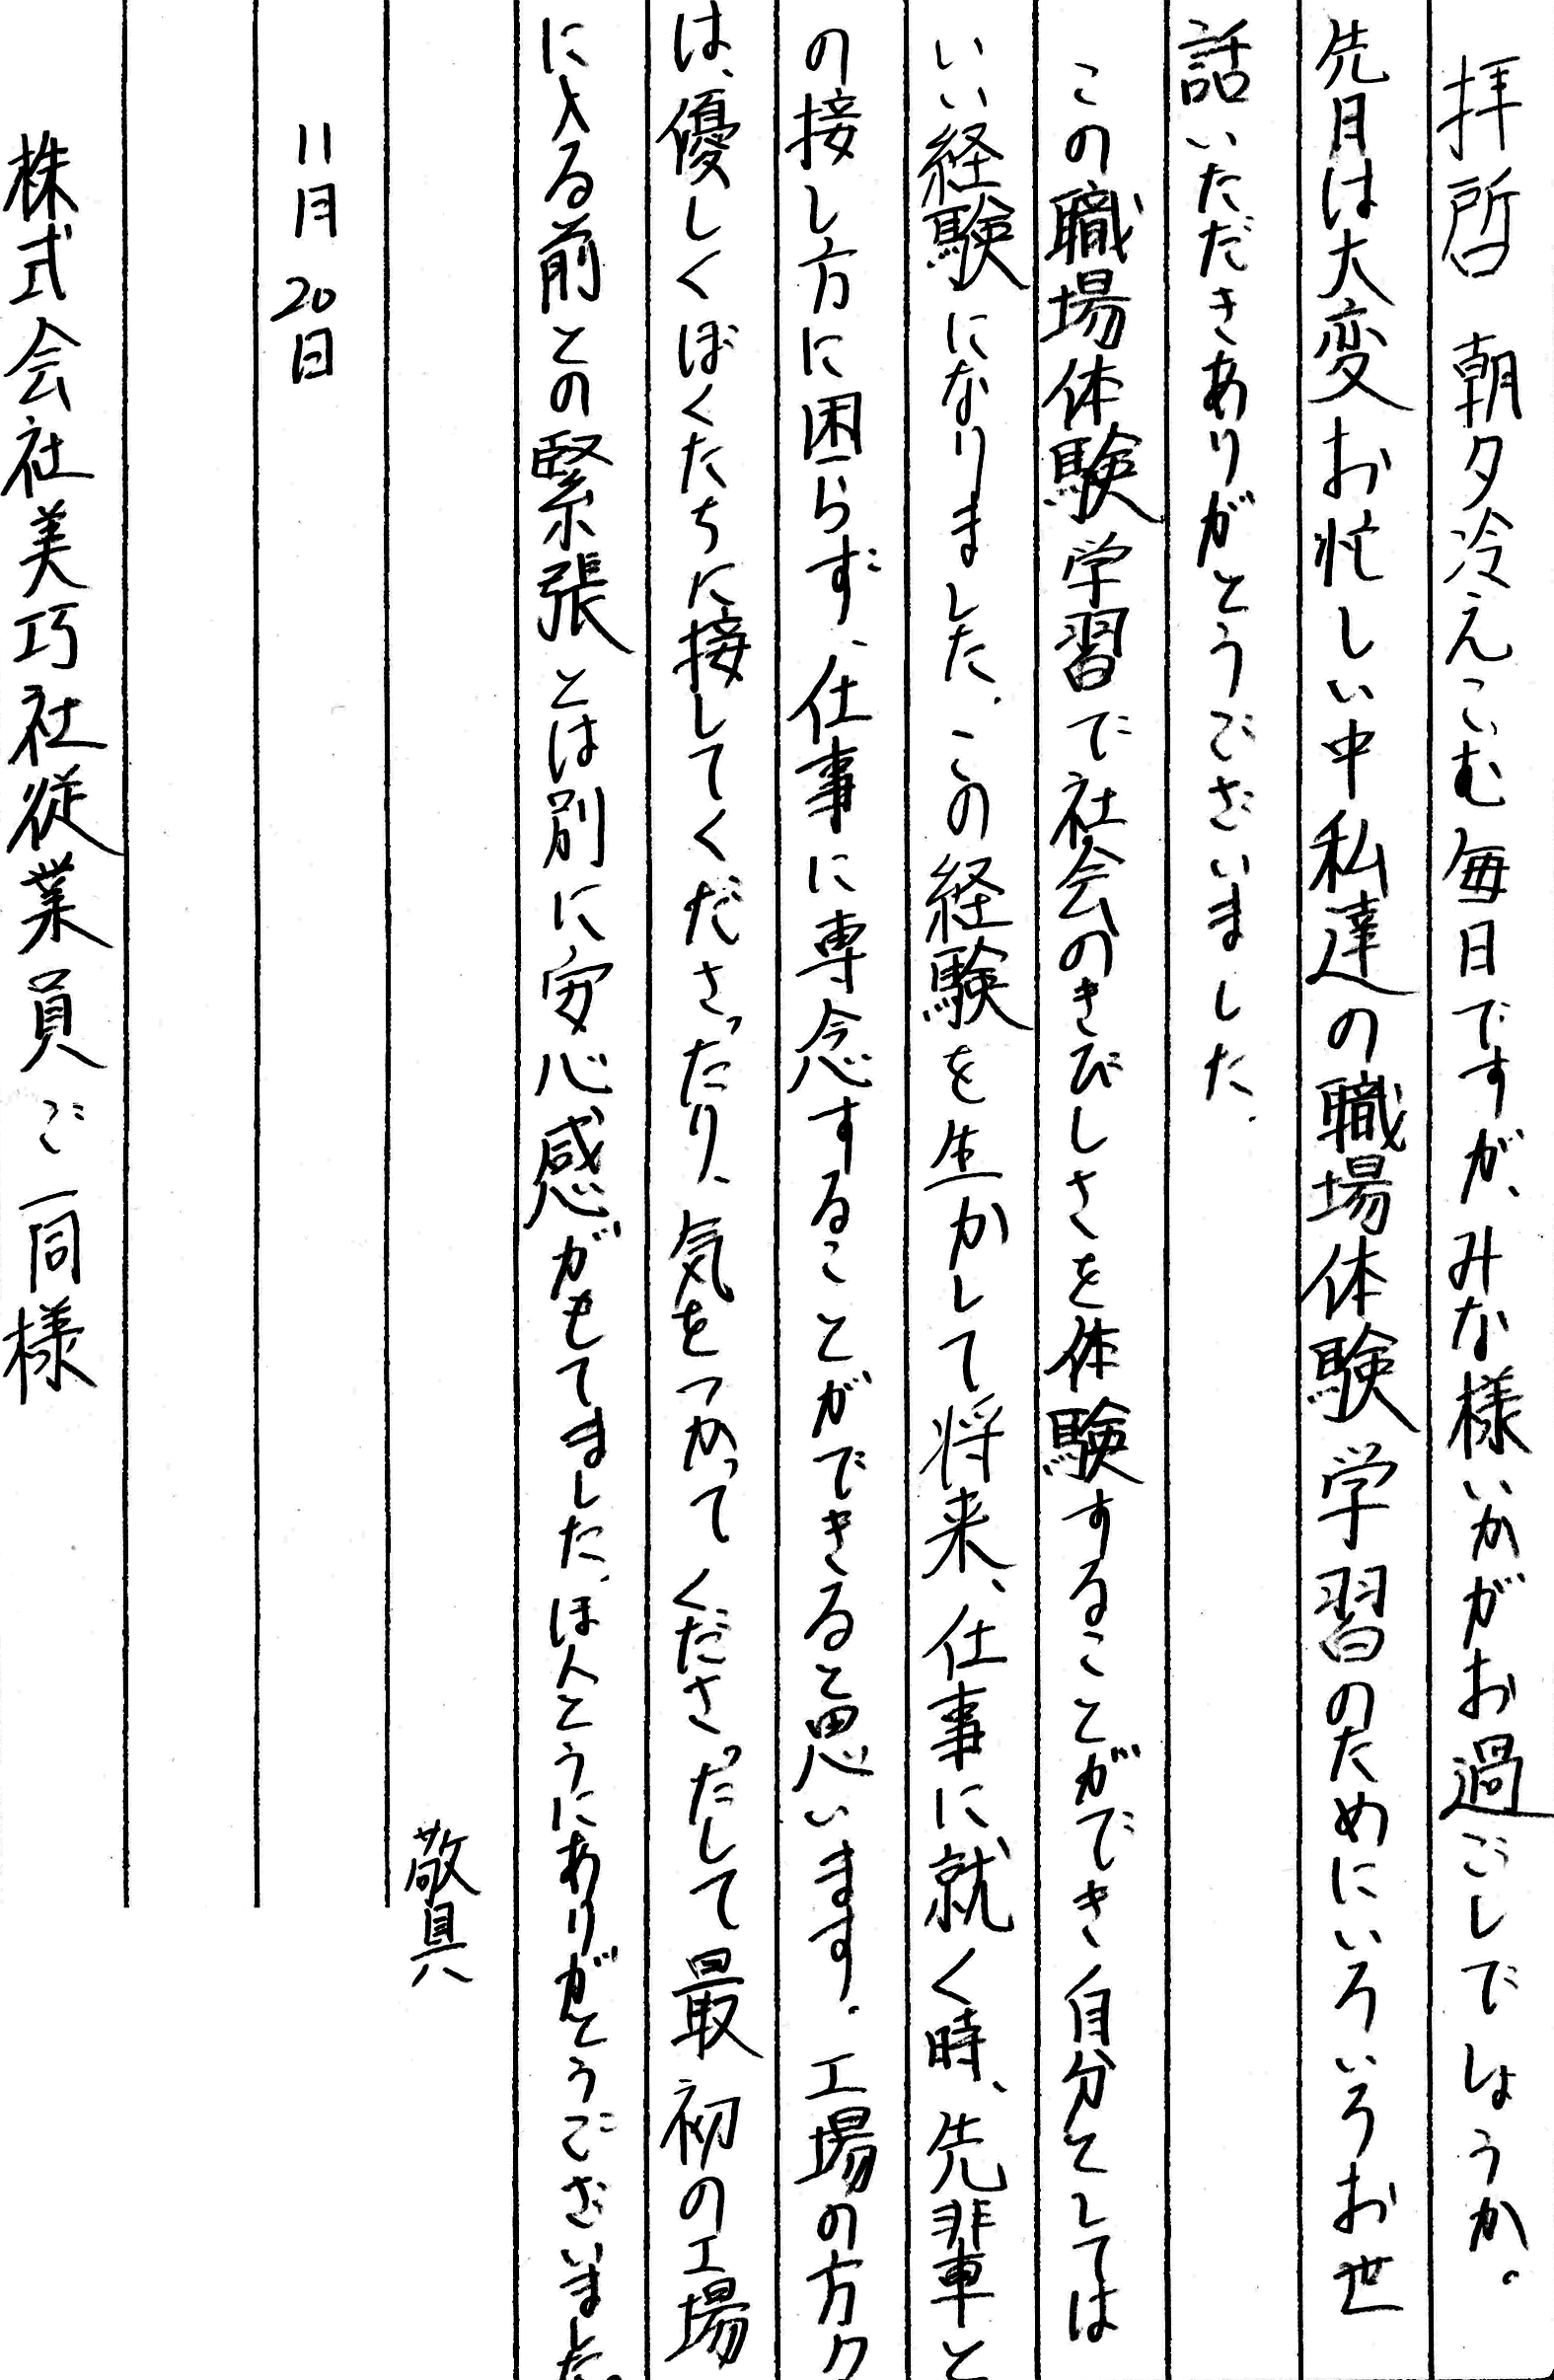 拝啓　朝夕冷えこむ毎日ですが、みな様いかがお過ごしでしょうか。
先月は大変お忙しい中私達の職場体験学習のためにいろいろお世
話いただきありがとうございました。
この職場体験学習で社会のきびしさを体験することができ自分としては
いい経験になりました。この経験を生かして将来、仕事に就く時、先輩と
の接し方に困らず、仕事に専念することができると思います。工場の方々
は、優しくぼくたちに接してくださったり、気をつかってくださったして最初の工場
に入る前との緊張とは別に安心感がもてました。ほんとうにありがとうございました。
敬具
11月20日
株式会社美巧社従業員ご一同様